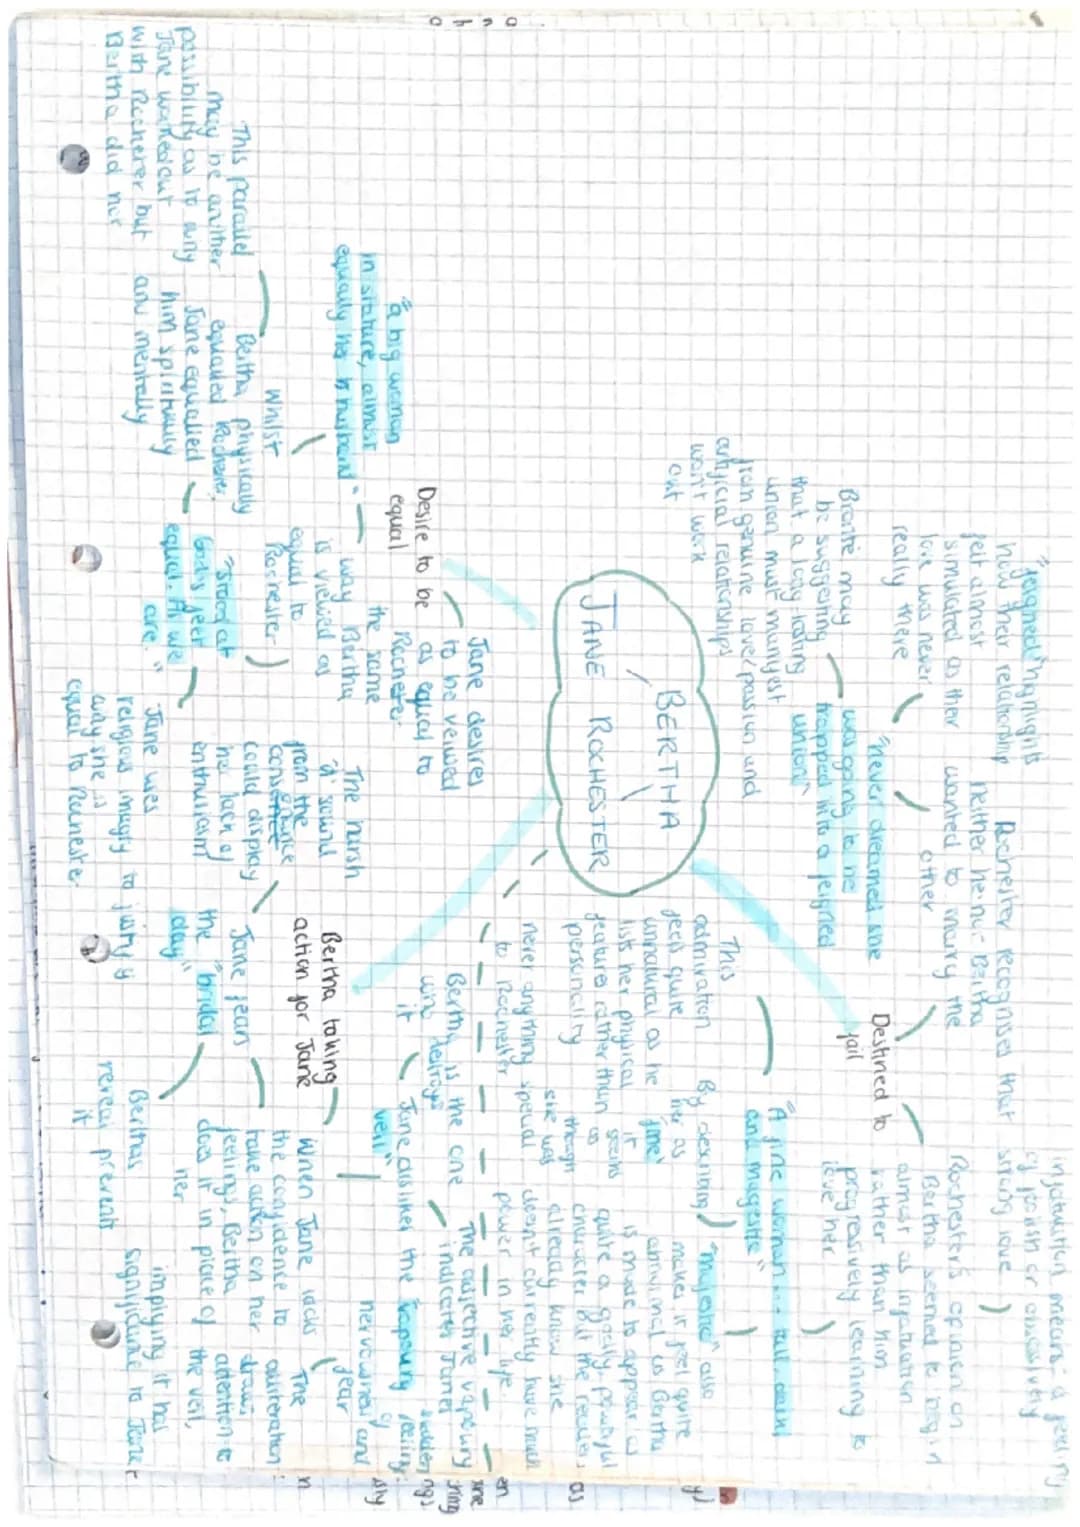 BERTHA
/ \
JANE ROCHESTER
Destined to
fail
infatuation means: a feeling
of foolish or obsessively
strong love
Rochester's opinion on
Bertha seemed to begin
almost as infatuation
rather than him
progressively learning to
love her
Rochester recognises that
neither he nor Bertha
wanted to marry the
other
"feigned" highlights
how their relationship
felt almost
simulated as their
love was never
really there
"never dreamed she
was going to be
trapped into a feigned
union"
Brontë may
be suggesting
that a long lasting
union must manifest
from genuine love/passion and
artificial relationships
won't work
out
"A fine woman... tall, dark
and majestic"
This
admiration
feels quite
unnatural as he
lists her physical
features rather than
personality
By describing
her as
"fine"
it
seems
as
though
she was
never anything special
to Rochester
"majestic" also
makes it feel quite
as Bertha
is made to appear as
quite a godly powerful
character but the reader
already know she
doesn't currently have much
power in her life
Desire to be
equal
Jane desires
to be viewed
as equal to
Rochester
the same
way Bertha
is viewed as
equal to
Rochester
"a big woman
in stature, almost
equally her husband"
Whilst
Bertha physically
equalled Rochester,
Jane equalled
him spiritually
and mentally
This parallel
may be another
possibility as to why
Jane worked out
with Rochester but
Bertha did not
"stood at
God's feet
equal. As we
are."
Jane uses
religious imagry to justify
way she is
equal to Rochester
Bertha taking
action for Jane
When Jane lacks
the confidence to
take action on her
feelings, Bertha
does it in place of
her
Jane fears
the "bridal
day"
The harsh
'd' sound
from the
could display
her lack of
enthusiasm
Berthas
reveal prevents
it
Jane dislikes the vapoury
veil"
Bertha is the one
who destroys
it
The adjective vapoury
indicates Janes
feeling
of
nervousness and
fear
The
aliteration
draws
attention to
the veil,
implying it has
significance to Jane